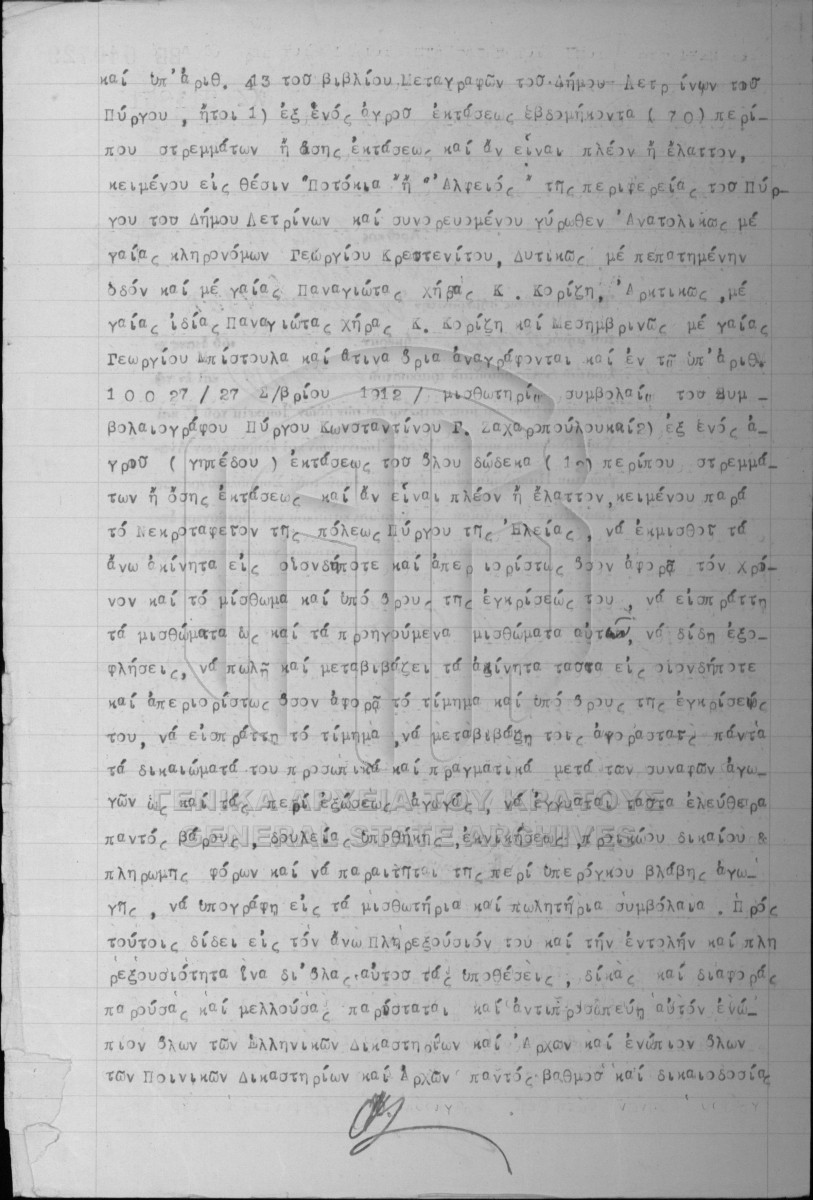 καί ὑπ' ἀριθ. 43 τοῦ βιβλίου Μεταγραφῶν τοῦ Δήμου Λετρίνων τοῦ
Πύργου, ἤτοι 1) ἐξ ἑνός ἀγροῦ ἐκτάσεως ἑβδομήκοντα (70) περί-
που στρεμμάτων ἤ ὅσης ἐκτάσεως καί ἄν εἶναι πλέον ἤ ἔλαττον,
κειμένου εἰς θέσιν "Ποτόκια" ἤ "Ἀλφειός" τῆς περιφερείας τοῦ Πύρ-
γου τοῦ Δήμου Λετρίνων καί συνορευομένου γύρωθεν Ἀνατολικῶς μέ
γαίας κληρονόμων Γεωργίου Κρεστενίτου, Δυτικῶς μέ πεπατημένην
ὁδόν καί μέ γαίας Παναγιώτας χήρας Κ. Κορίζη, Ἀρκτικῶς, μέ
γαίας ἰδίας Παναγιώτας χήρας Κ. Κορίζη καί Μεσημβρινῶς μέ γαίας
Γεωργίου Μπίστουλα καί ἅτινα ὅρια ἀναγράφονται καί ἐν τῷ ὑπ' ἀριθ.
10027/27 Δ/βρίου 1912/ μισθωτηρίῳ συμβολαίῳ τοῦ Συμ-
βολαιογράφου Πύργου Κωνσταντίνου Γ. Ζαχαροπούλου καί 2) ἐξ ἑνός ἀ-
γροῦ (γηπέδου) ἐκτάσεως τοῦ ὅλου δώδεκα (12) περίπου στρεμμά-
των ἤ ὅσης ἐκτάσεως καί ἄν εἶναι πλέον ἤ ἔλαττον, κειμένου παρά
τό Νεκροταφεῖον τῆς πόλεως Πύργου τῆς Ἠλείας, νά ἐκμισθοῖ τά
ἄνω ἀκίνητα εἰς οἱονδήποτε καί ἀπεριορίστως ὅσον ἀφορᾷ τόν χρό-
νον καί τό μίσθωμα καί ὑπό ὅρους τῆς ἐγκρίσεώς του, νά εἰσπράττη
τά μισθώματα ὡς καί τά προηγούμενα μισθώματα αὐτῶν, νά δίδη ἐξο-
φλήσεις, νά πωλῇ καί μεταβιβάζει τά ἀκίνητα ταῦτα εἰς οἱονδήποτε
καί ἀπεριορίστως ὅσον ἀφορᾷ τό τίμημα καί ὑπό ὅρους τῆς ἐγκρίσεώς
του, νά εἰσπράττη τό τίμημα, νά μεταβιβάζη τοῖς ἀγορασταῖς πάντα
τά δικαιώματά του προσωπικά καί πραγματικά μετά τῶν συναφῶν ἀγω-
γῶν ὡς καί τάς περί ἐξώσεως ἀγωγάς, νά ἐγγυᾶται ταῦτα ἐλεύθερα
παντός βάρους, δουλείας ὑποθήκης, ἐκνικήσεως, προικώου δικαίου &
πληρωμῆς φόρων καί νά παραιτῆται τῆς περί ὑπερόγκου βλάβης ἀγω-
γῆς, νά ὑπογράφη εἰς τά μισθωτήρια καί πωλητήρια συμβόλαια. Πρός
τούτοις δίδει εἰς τόν ἄνω Πληρεξούσιόν του καί τήν ἐντολήν καί πλη
ρεξουσιότητα ἵνα δι' ὅλας αὐτοῦ τάς ὑποθέσεις, δίκας καί διαφοράς
παρούσας καί μελλούσας παρίσταται καί ἀντιπροσωπεύη αὐτόν ἐνώ-
πιον ὅλων τῶν Ἑλληνικῶν Δικαστηρίων καί Ἀρχῶν καί ἐνώπιον ὅλων
τῶν Ποινικῶν Δικαστηρίων καί Ἀρχῶν παντός βαθμοῦ καί δικαιοδοσίας
ΓΕΝΙΚΑ ΑΡΧΕΙΑ ΤΟΥ ΚΡΑΤΟΥΣ
GENERAL STATE ARCHIVES